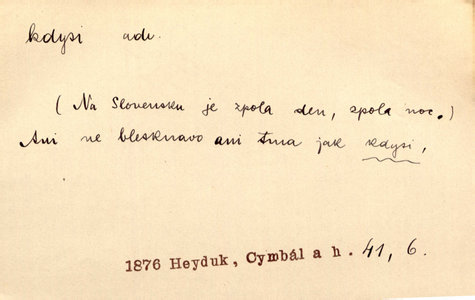 kdysi adv.
( Na Slovensku je zpola den, zpola noc.)
Ani ne blesknavo ani tma jak kdysi,
1876 Heyduk, Cymbál a h. 41, 6.